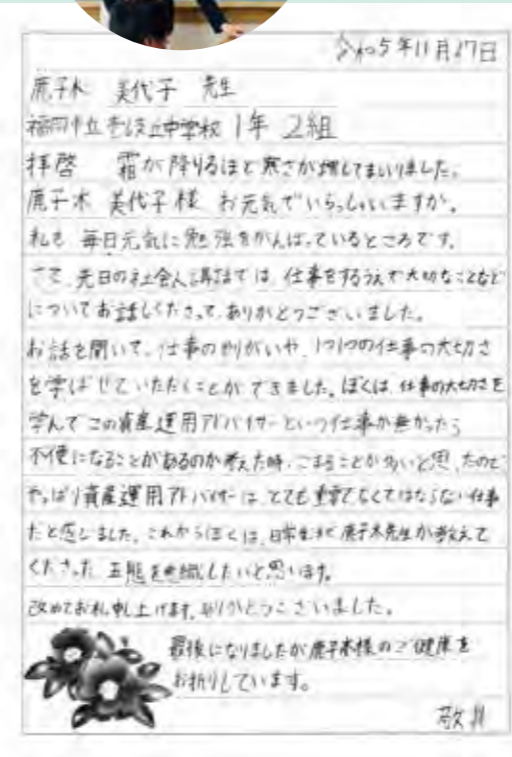 令和5年11月27日
原子木 美代子 先生
福岡市立 中学校 1年 2組
拝啓 霜が降りるほど寒さが増してまいりました。
原子木 美代子様 お元気でいらっしゃいますか。
私も 毎日元気に勉強をがんばっているところです。
さて、先日の社会人講話では、仕事をするうえで大切なことなど
についてお話しくださって、ありがとうございました。
お話を聞いて、仕事のやりがいや、1つ1つの仕事の大切さ
を学ばせていただくことができました。ぼくは、仕事の大切さを
学んでこの資産運用アドバイザーという仕事が無かったら
不便になることがあるのか考えた時、こまることが多いと思ったので
やっぱり資産運用アドバイザーは、とても重要でなくてはならない仕事
だと感じました。これからぼくは、日常生活 原子木先生が教えて
くださった 意識したいと思います。
改めてお礼申し上げます。ありがとうございました。
最後になりましたが原子木様のご健康を
お祈りしています。
敬具